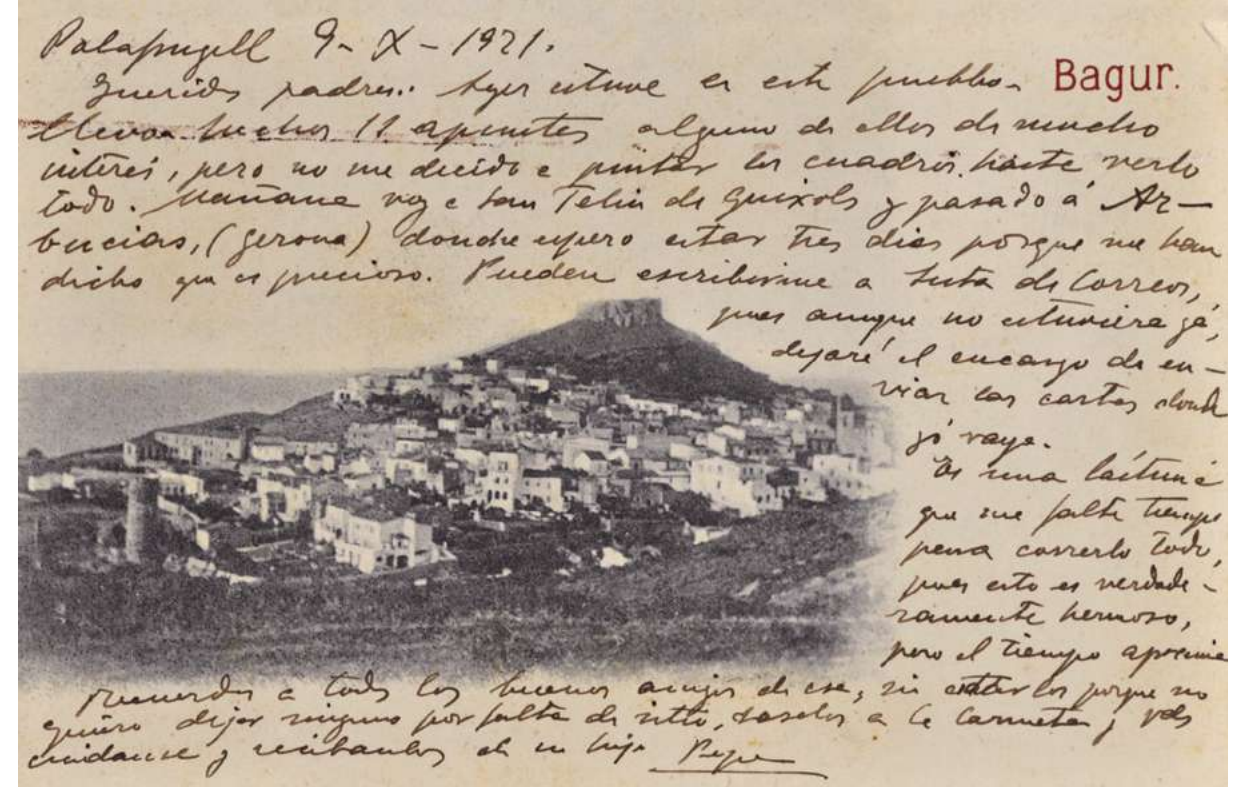 Palafrugell 9-X-1921.
Bagur.
Queridos padres: Ayer estuve en este pueblo.
Llevo hechos 11 apuntes alguno de ellos de mucho
interés, pero no me decido a pintar los cuadros hasta verlo
todo. Mañana voy a San Feliu de Guixols y pasado á Ar-
bucias, (Gerona) donde espero estar tres dias porque me han
dicho que es precioso. Pueden escribirme a lista de Correos,
pues aunque no estuviera yá,
dejaré el encargo de en-
viar las cartas donde
yó vaya.
Es una lástima
que me falte tiempo
para correrlo todo,
pues esto es verdade-
ramente hermoso,
pero el tiempo apremia
Recuerdos a todos los buenos amigos de ese, sin citarlos porque no
quiero dejar ninguno por falta de sitio, a la y vds
cuidanse y recibanlos de su hijo Pepe